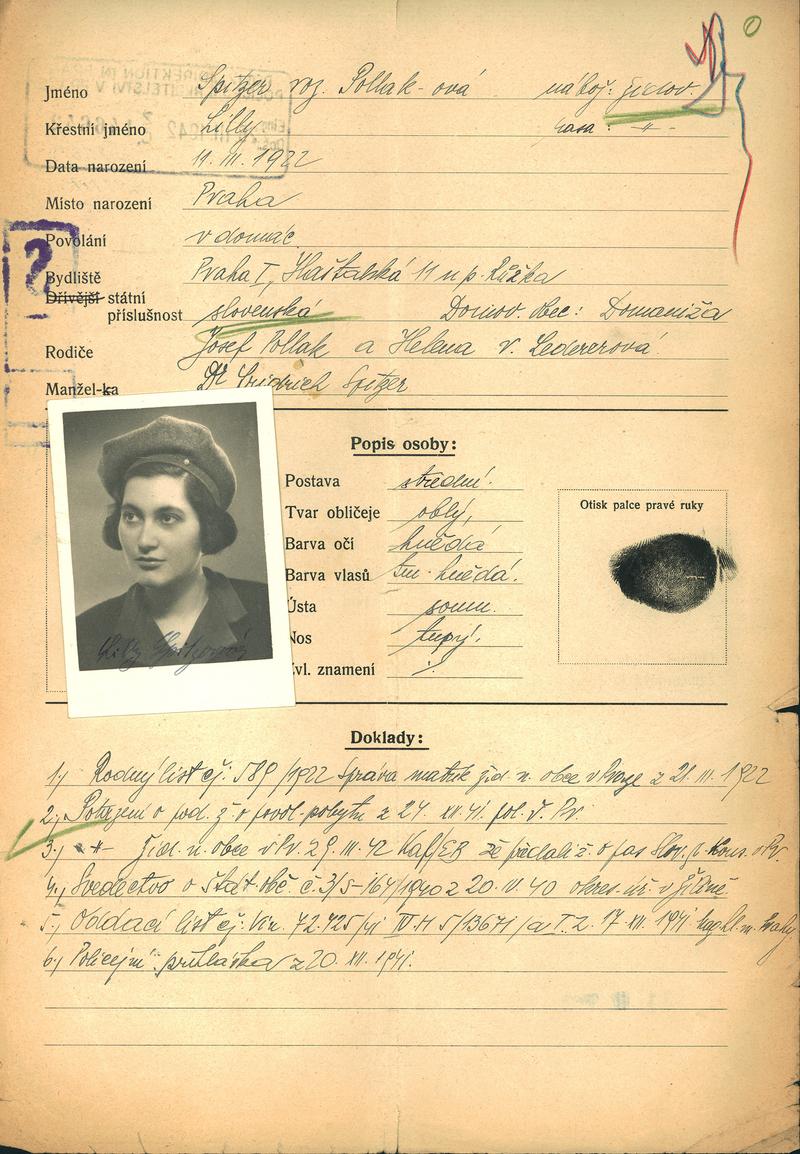 Jméno Spitzer roz. Pollak-ová nábož: židov.
Křestní jméno Lilly rasa: -"-
Data narození 11. III. 1922
Místo narození Praha
Povolání v domác.
Bydliště Praha I, Haštalská 11 u p. Růžka
Dřívější státní
příslušnost slovenská Domov. obec: Domaniža
Rodiče Josef Pollak a Helena r. Ledererová
Manžel-ka Dr Fridrich Spitzer
?
Popis osoby:
Postava střední.
Tvar obličeje oblý,
Barva očí hnědá
Barva vlasů tm. hnědá.
Ústa soum.
Nos tupý.
Zvl. znamení
Otisk palce pravé ruky
Lilly Spitzerová
Doklady:
1.) Rodný list čj. 589/1922 Správa matrik žid. n. obce v Praze z 21. III. 1922
2.) Potvrzení o pod. ž. o povol. pobytu z 24. XII. 41. pol. ř. Pr.
3.) -"- žid. n. obce v Pr. 29. III. 42 že předlali ž. o pas Slov. Kons. v Pr.
4.) Svedectvo o štát. obč. č. 3/5-164/1940 z 20. V. 40 okres. úř. v Žilině
5.) Oddací list čj. Vin. 72.425/41 17. XII. 1941 mag. hl. m. Prahy
6.) Policejní přihláška z 20. XII. 1941.